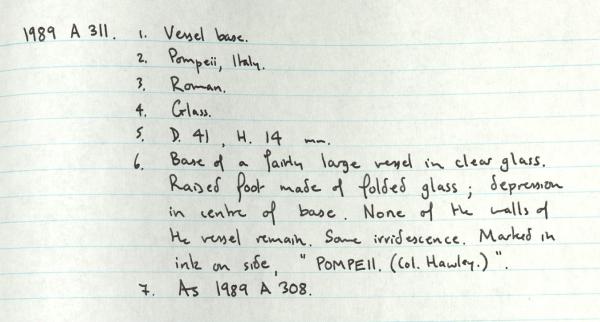 1989 A 311. 1. Vessel base.
2. Pompeii, Italy.
3. Roman.
4. Glass.
5. D. 41, H. 14 mm.
6. Base of a fairly large vessel in clear glass.
Raised foot made of folded glass; depression
in centre of base. None of the walls of
the vessel remain. Some irridescence. Marked in
ink on side, "POMPEII. (Col. Hawley.)".
7. As 1989 A 308.